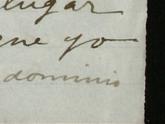 lugar
que yo
dominio